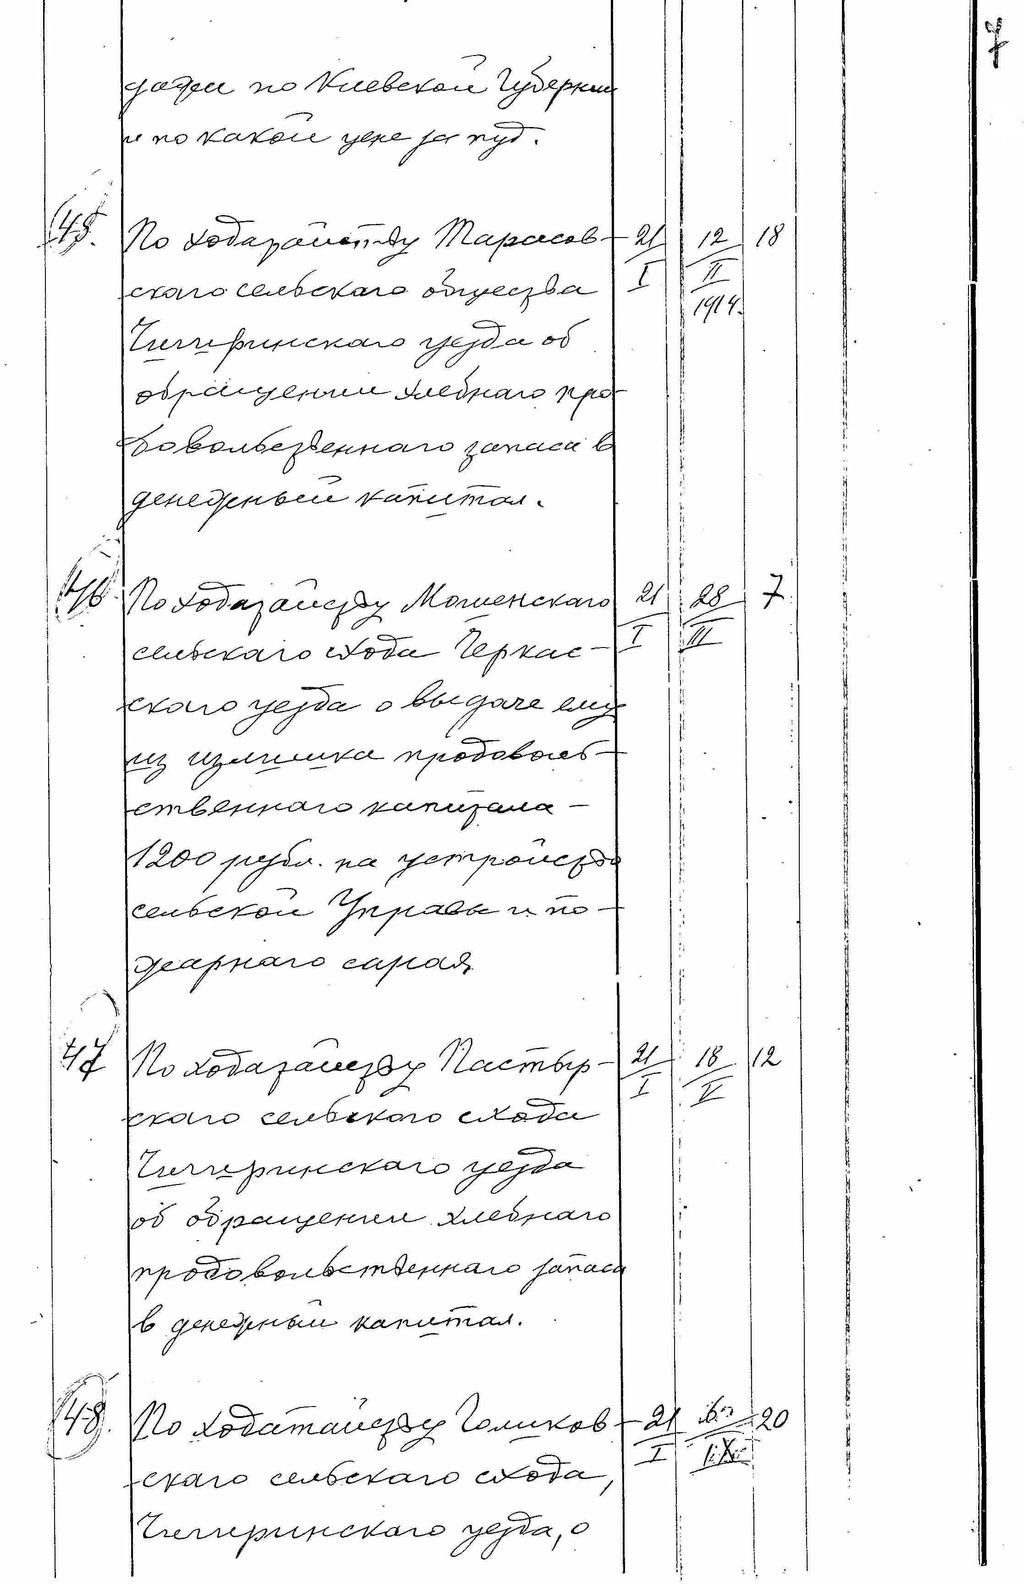 7
дажи по Киевской Губернии
и по какой цене за пуд.
45. По ходатайству Тарасов- 21/I 12/II 1914. 18
скаго сельскаго общества
Чигиринскаго уезда об
обращении хлебнаго про-
довольственнаго запаса в
денежный капитал.
46. По ходатайству Мошенскаго 21/I 28/III 7
сельскаго схода Черкас-
скаго уезда о выдаче ему
из излишка продоволь-
ственнаго капитала -
1200 рубл. на устройство
сельской Управы и по-
жарнаго сарая
47 По ходатайству Пастыр- 21/I 18/V 12
скаго сельского схода
Чигиринскаго уезда
об обращении хлебнаго
продовольственнаго запаса
в денежный капитал.
48. По ходатайству Голиков- 21/I 20
скаго сельскаго схода,
Чигиринскаго уезда, о